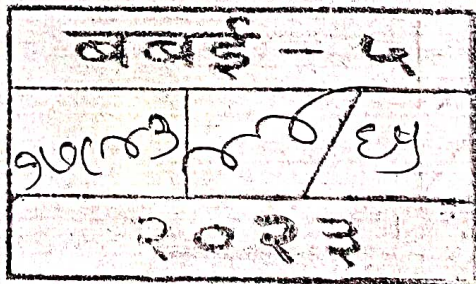 बबई - ५
१७८७३ / ६५
२०२३